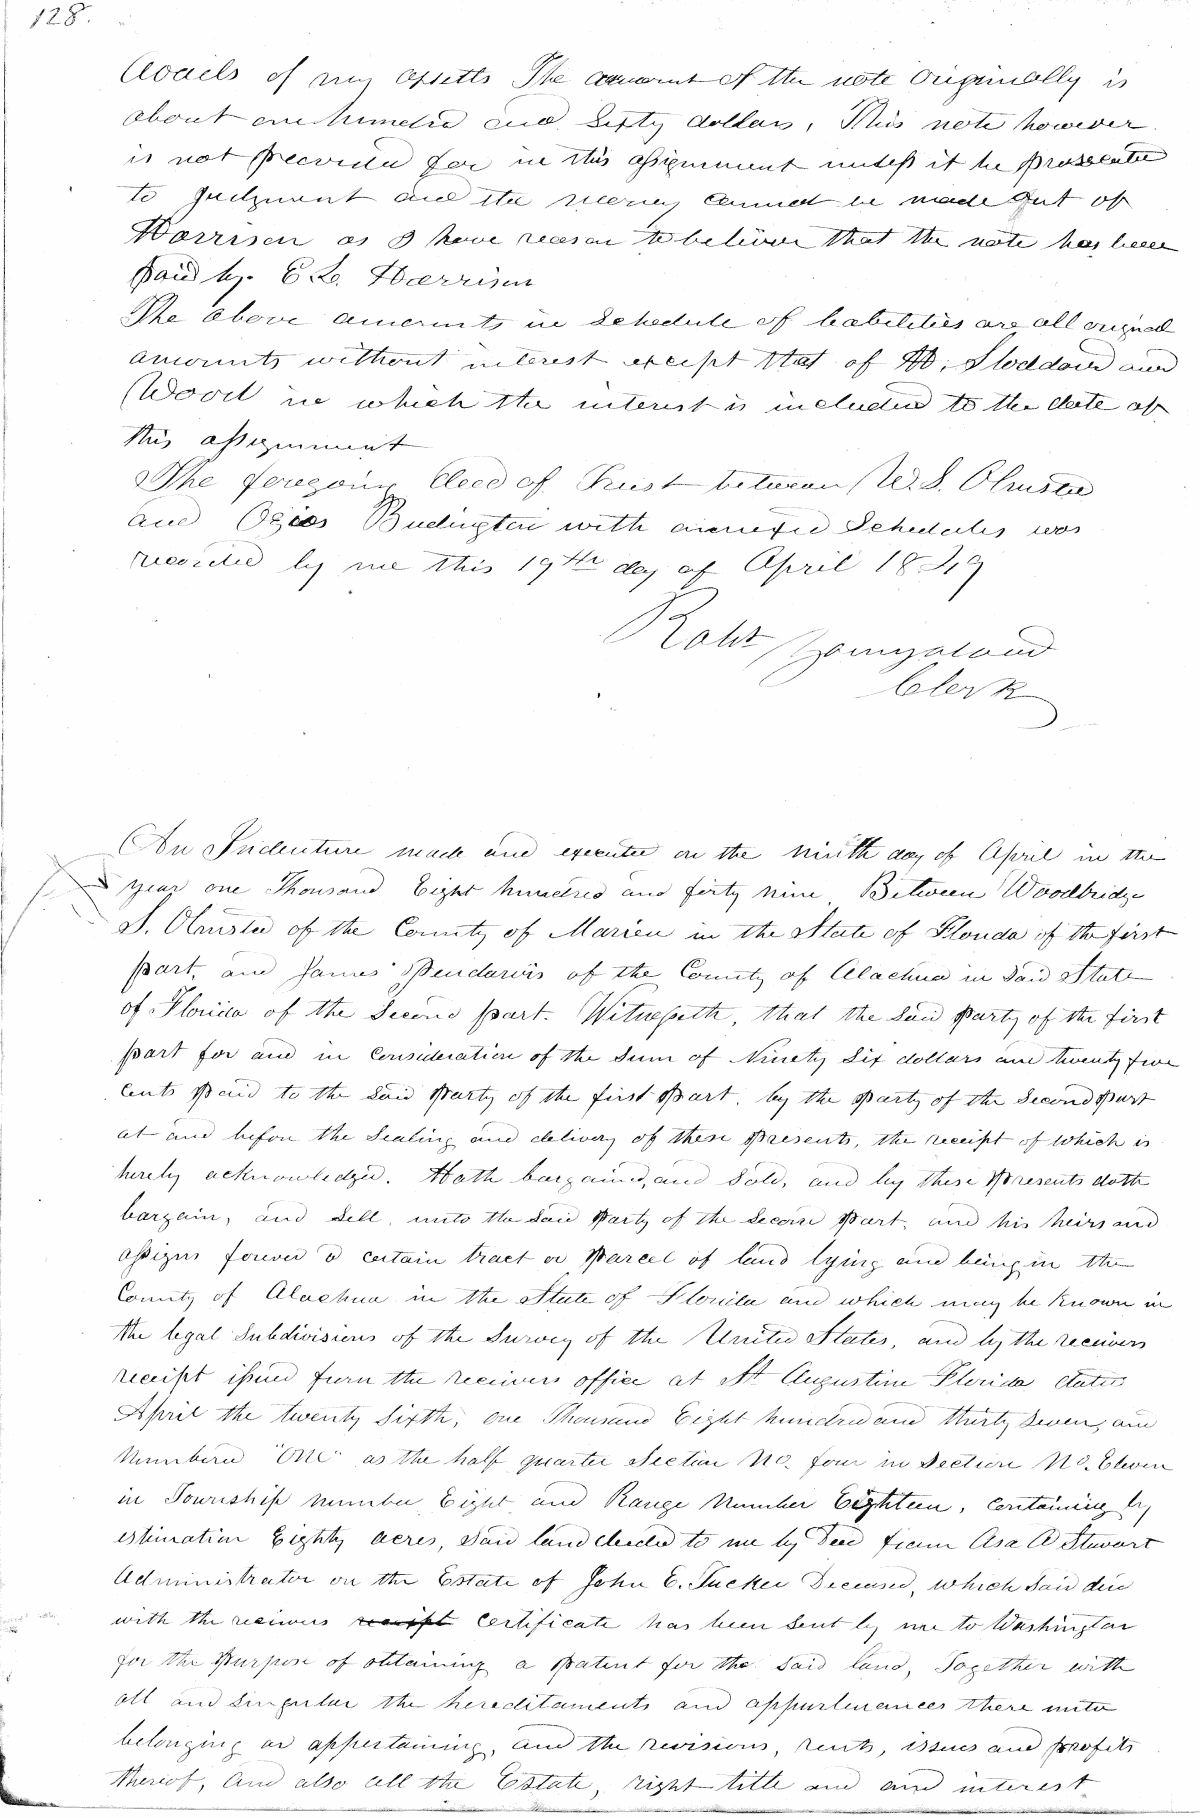 128.
Avails of my assetts The amount of the note originally is
about one hundred and Sixty dollars, This note however
is not provided for in this assignment unless it be prosecuted
to Judgment and the money cannot be made out of
Harrison as I have reason to believe that the note has been
paid by E. L. Harrison
The above amounts in Schedule of liabilities are all original
amounts without interest except that of H. Stoddard and
Wood in which the interest is included to the date of
this assignment
The foregoing Deed of Trust between W. S. Olmsted
and Ozias Budington with annexed Schedules was
recorded by me this 19th day of April 1849
Robt
Clerk
An Indenture made and executed on the ninth day of April in the
year one Thousand Eight hundred and forty nine Between Woodbridge
S. Olmsted of the County of Marion in the State of Florida of the first
part, and James Pendarvis of the County of Alachua in said State
of Florida of the Second part. Witnesseth, that the said Party of the first
part for and in consideration of the Sum of Ninety Six dollars and twenty five
cents Paid to the said Party of the first Part, by the Party of the Second Part
at and before the Sealing and delivery of these Presents, the receipt of which is
hereby acknowledged. Hath bargained, and Sold, and by these Presents doth
bargain, and Sell, unto the said Party of the Second Part, and his heirs and
assigns forever a certain tract or Parcel of land lying and being in the
County of Alachua in the State of Florida and which may be Known in
the legal Subdivisions of the Survey of the United States, and by the receivers
receipt issued from the receivers office at St Augustine Florida dated
April the twenty Sixth, one Thousand Eight hundred and thirty Seven, and
Numbered "One" as the half quarter Section No. four in Section No. Eleven
in Township number Eight and Range Number Eighteen, containing by
estimation Eighty acres, said land deeded to me by Deed from Asa A Stewart
Administrator on the Estate of John E. Tucker Deceased, which said deed
with the receivers receipt certificate has been sent by me to Washington
for the Purpose of obtaining a Patent for the said land, Together with
all and singular the hereditaments and appurtenances there unto
belonging or appertaining, and the revisions, rents, issues and profits
thereof, and also all the Estate, right title and and interest